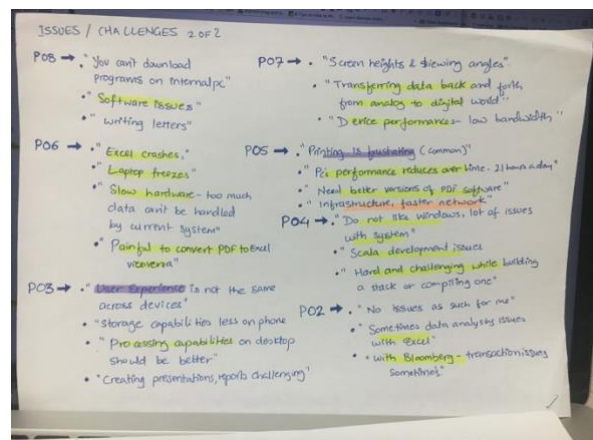 ISSUES / CHALLENGES 2 OF 2
P08 → • "You can't download
programs on internal pc"
• "Software issues"
• "Writing letters"
P06 → • "Excel crashes."
• "Laptop freezes"
• "Slow hardware - too much
data can't be handled
by current system"
• "Painful to convert PDF to Excel
P03 → • "User Experience is not the same
across devices"
• "Storage capabilities less on phone
• "Processing capabilities on desktop
should be better"
• "Creating presentations, reports challenging"
P07 → • "Screen heights & viewing angles".
• "Transferring data back and forth
from analog to digital world"
• "Device performance - low bandwidth"
P05 → • "Printing is frustrating (common)"
• "performance reduces over time - 21 hours a day"
• "Need better versions of PDF software"
• "Infrastructure, faster network"
P04 → • "Do not like windows, lot of issues
with system"
• "Scala development issues
• "Hard and challenging while building
a stack or compiling one"
P02 → • "No issues as such for me"
• "Sometimes data analysis issues
with Excel"
• "With Bloomberg - transaction issues
sometimes"